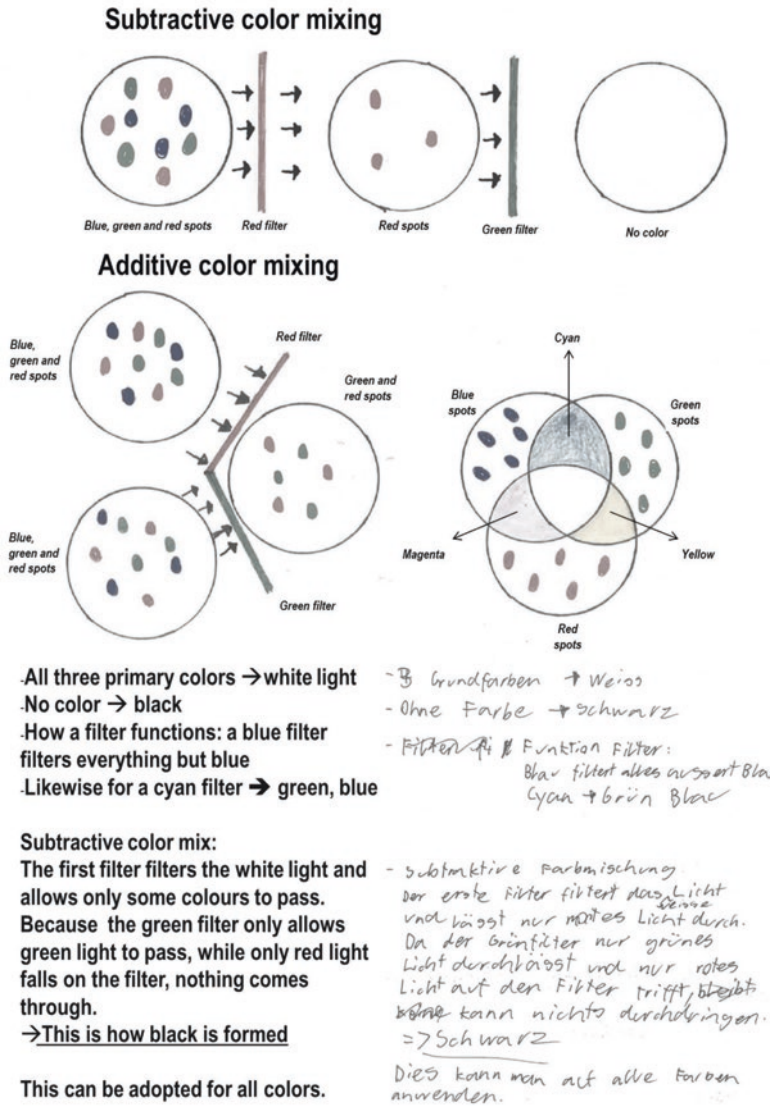 Subtractive color mixing
Blue, green and red spots
Red filter
Red spots
Green filter
No color
Additive color mixing
Blue,
green and
red spots
Red filter
Green and
red spots
Blue,
green and
red spots
Green filter
Cyan
Blue
spots
Green
spots
Magenta
Yellow
Red
spots
-All three primary colors →white light
-No color → black
-How a filter functions: a blue filter
filters everything but blue
-Likewise for a cyan filter → green, blue
Subtractive color mix:
The first filter filters the white light and
allows only some colours to pass.
Because the green filter only allows
green light to pass, while only red light
falls on the filter, nothing comes
through.
→This is how black is formed
This can be adopted for all colors.
- 3 Grundfarben → Weiss
- Ohne Farbe → Schwarz
- Funktion Filter:
Blau filtert alles aussert Blau
Cyan → Grün Blau
- Subtraktive Farbmischung
Der erste Filter filtert das weisse Licht
und lässt nur rotes Licht durch.
Da der Grünfilter nur grünes
Licht durchlässt und nur rotes
Licht auf den Filter trifft,
kann nichts durchdringen.
=> Schwarz
Dies kann man auf alle Farben
anwenden.